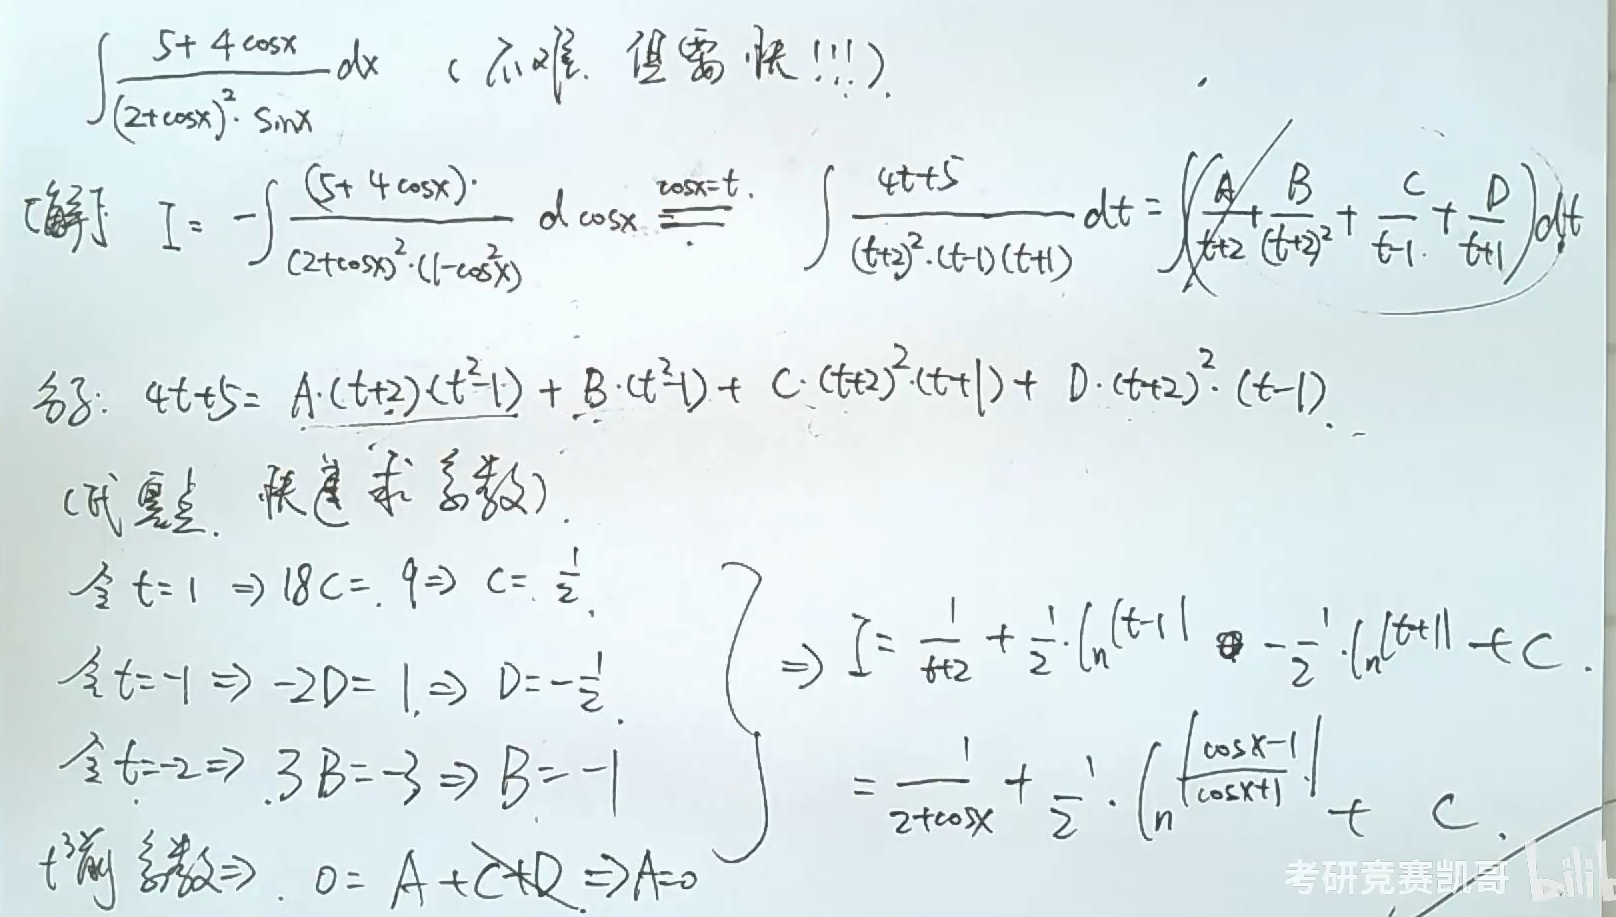 ∫ (5+4cosx)/((2+cosx)²·sinx) dx (不难. 但需快!!!).
[解] I = -∫ (5+4cosx)·/((2+cosx)²·(1-cos²x)) d cosx  cosx=t. ══ ∫ (4t+5)/((t+2)²·(t-1)(t+1)) dt = ∫(A/(t+2) + B/(t+2)² + C/(t-1) + D/(t+1))dt
分子: 4t+5 = A·(t+2)·(t²-1) + B·(t²-1) + C·(t+2)²·(t+1) + D·(t+2)²·(t-1).
(代零点. 快速求系数).
令 t=1 ⇒ 18C = 9 ⇒ C = 1/2.
令 t=-1 ⇒ -2D = 1. ⇒ D = -1/2.
令 t=-2 ⇒ 3B = -3 ⇒ B = -1
t³前系数 ⇒ 0 = A+C+D. ⇒ A=0
⇒ I = 1/(t+2) + 1/2·ln|t-1| - 1/2·ln|t+1| + C.
= 1/(2+cosx) + 1/2·ln|(cosx-1)/(cosx+1)| + C.
考研竞赛凯哥 bilibili